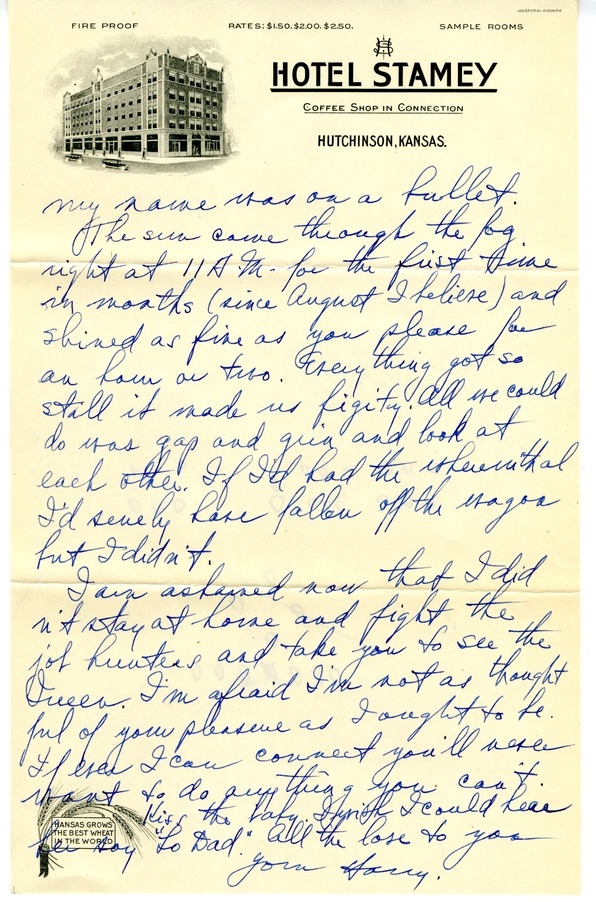 FIRE PROOF RATES: $1.50. $2.00. $2.50. SAMPLE ROOMS
HOTEL STAMEY
COFFEE SHOP IN CONNECTION
HUTCHINSON, KANSAS.
my name was on a bullet.
The sun came through the fog
right at 11 A.M. for the first time
in months (since August I believe) and
shined as fine as you please for
an hour or two. Everything got so
still it made us figity. All we could
do was gap and grin and look at
each other. If I'd had the wherewithal
I'd surely have fallen off the wagon
but I didn't.
I am ashamed now that I did
n't stay at home and fight the
job hunters and take you to see the
Queen. I'm afraid I'm not as thought
ful of your pleasure as I ought to be.
If ever I can connect you'll never
want to do anything you can't.
Kiss the baby. I wish I could hear
her say "Lo Dad." All the love to you
Your Harry.
KANSAS GROWS
THE BEST WHEAT
IN THE WORLD